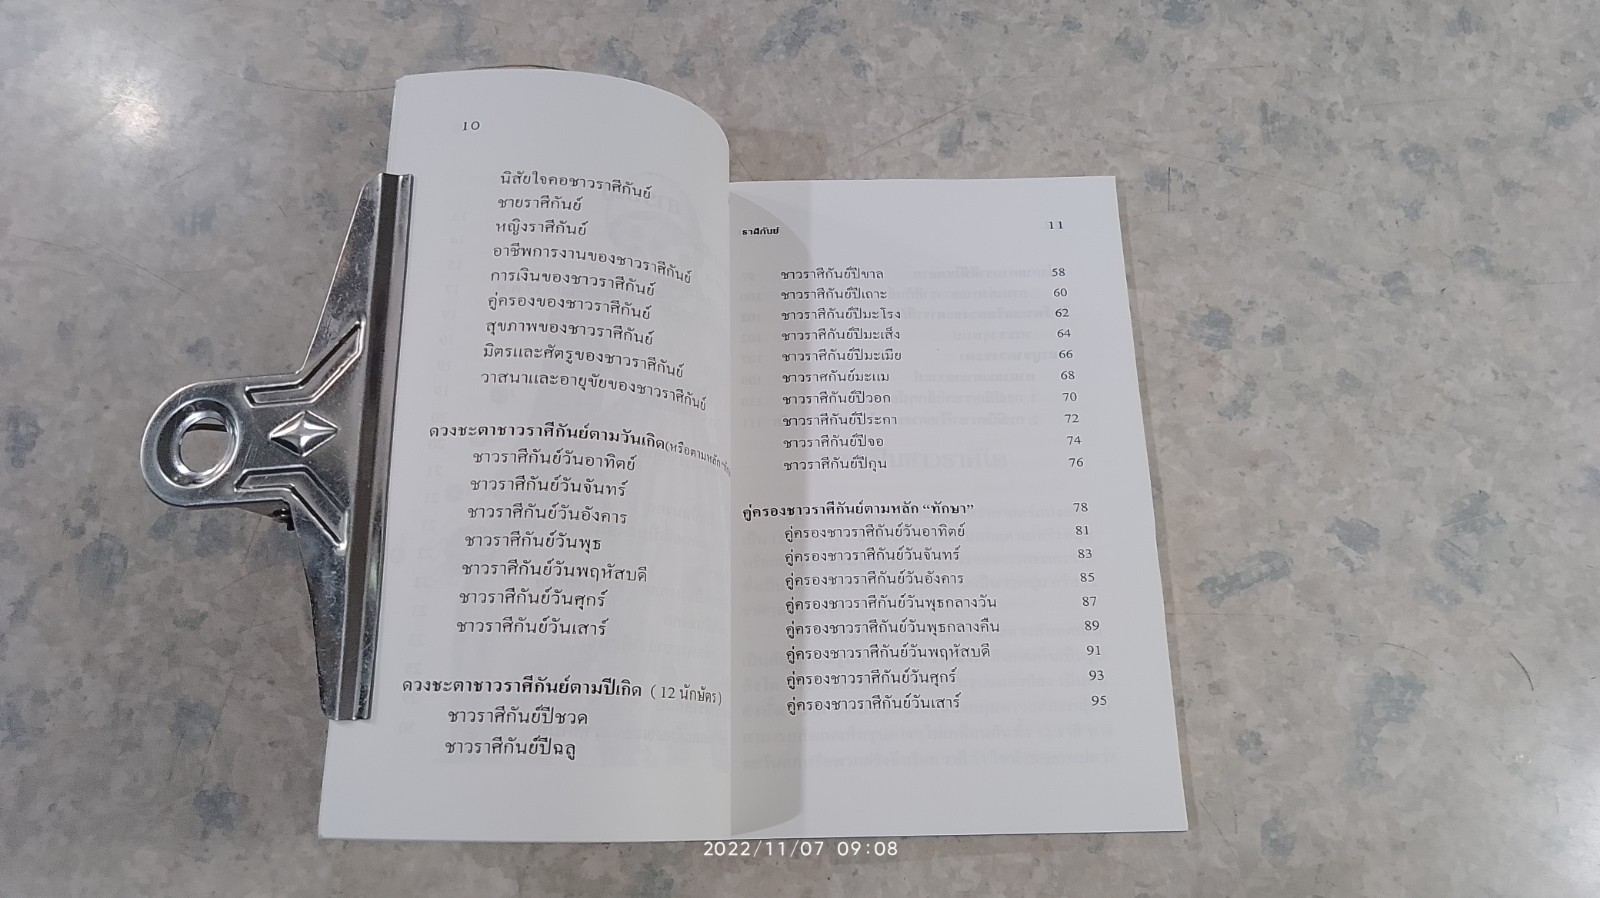 10
นิสัยใจคอชาวราศีกันย์
ชายราศีกันย์
หญิงราศีกันย์
อาชีพการงานของชาวราศีกันย์
การเงินของชาวราศีกันย์
คู่ครองของชาวราศีกันย์
สุขภาพของชาวราศีกันย์
มิตรและศัตรูของชาวราศีกันย์
วาสนาและอายุขัยของชาวราศีกันย์
ดวงชะตาชาวราศีกันย์ตามวันเกิด(หรือตามหลัก
ชาวราศีกันย์วันอาทิตย์
ชาวราศีกันย์วันจันทร์
ชาวราศีกันย์วันอังคาร
ชาวราศีกันย์วันพุธ
ชาวราศีกันย์วันพฤหัสบดี
ชาวราศีกันย์วันศุกร์
ชาวราศีกันย์วันเสาร์
ดวงชะตาชาวราศีกันย์ตามปีเกิด ( 12 นักษัตร)
ชาวราศีกันย์ปีชวด
ชาวราศีกันย์ปีฉลู
ราศีกันย์ 11
ชาวราศีกันย์ปีขาล 58
ชาวราศีกันย์ปีเถาะ 60
ชาวราศีกันย์ปีมะโรง 62
ชาวราศีกันย์ปีมะเส็ง 64
ชาวราศีกันย์ปีมะเมีย 66
ชาวราศกันย์มะแม 68
ชาวราศีกันย์ปีวอก 70
ชาวราศีกันย์ปีระกา 72
ชาวราศีกันย์ปีจอ 74
ชาวราศีกันย์ปีกุน 76
คู่ครองชาวราศีกันย์ตามหลัก “ทักษา” 78
คู่ครองชาวราศีกันย์วันอาทิตย์ 81
คู่ครองชาวราศีกันย์วันจันทร์ 83
คู่ครองชาวราศีกันย์วันอังคาร 85
คู่ครองชาวราศีกันย์วันพุธกลางวัน 87
คู่ครองชาวราศีกันย์วันพุธกลางคืน 89
คู่ครองชาวราศีกันย์วันพฤหัสบดี 91
คู่ครองชาวราศีกันย์วันศุกร์ 93
คู่ครองชาวราศีกันย์วันเสาร์ 95
2022/11/07 09:08